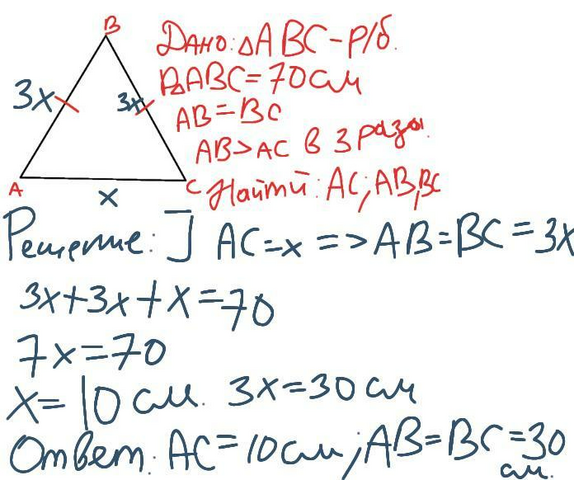 B
Дано: △ABC-р/б.
3x 3x P△ABC=70см
AB=BC
AB>AC в 3 раза.
A C Найти: AC; AB, BC
x
Решение: ] AC=x=>AB=BC=3x
3x+3x+x=70
7x=70
x=10 см. 3x=30 см
Ответ: AC=10см; AB=BC=30
см.